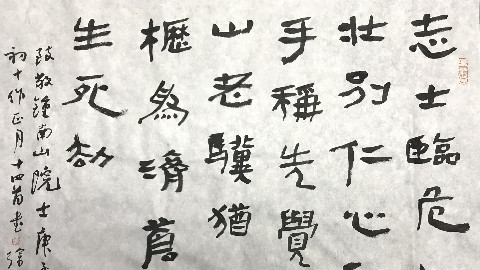 志士臨危
壯別仁心
手稱先覺
山老驥猶
櫪爲濟蒼
生死劫
致敬鍾南山院士庚子
初十作正月十四